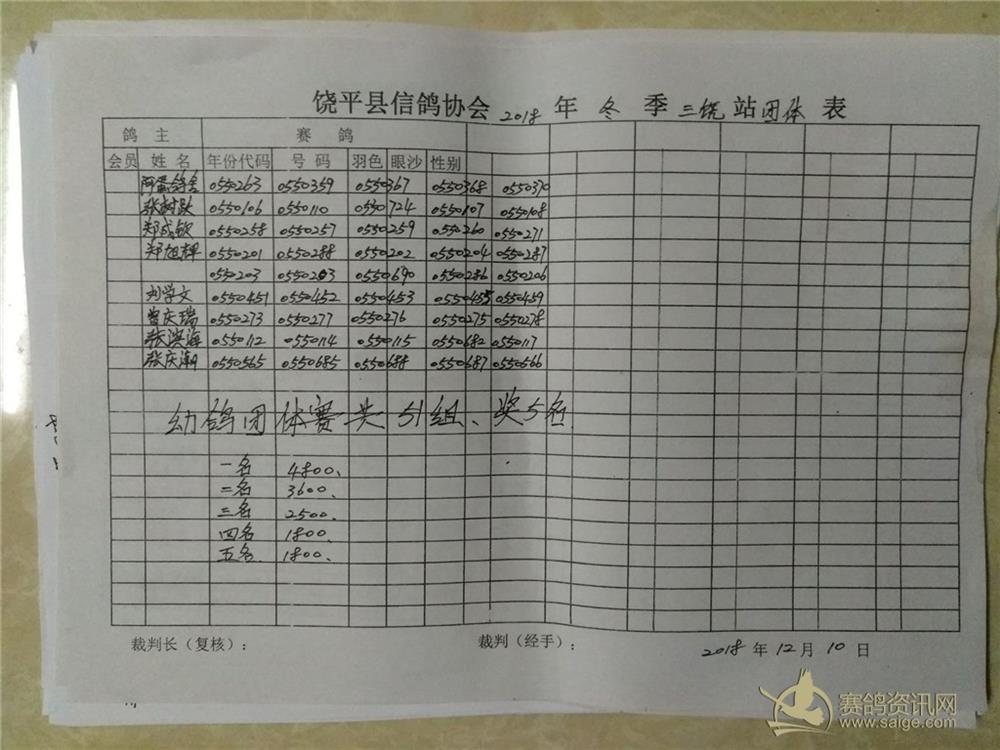 饶平县信鸽协会 2018 年 冬 季 三饶 站 团体 表
鸽 主 赛 鸽
会员 姓 名 年份代码 号 码 羽色 眼沙 性别
0550263 0550359 0550367 0550368 0550370
张树跃 0550106 0550110 0550724 0550107 0550108
郑成钦 0550258 0550257 0550259 0550260 0550271
郑旭辉 0550201 0550288 0550202 0550204 0550287
0550203 0550690 0550286 0550206
刘学文 0550451 0550452 0550453 0550455 0550459
曾庆瑞 0550273 0550277 0550276 0550275 0550278
张滨海 0550112 0550114 0550115 0550682 0550117
张庆潮 0550565 0550685 0550688 0550687 0550566
幼鸽团体赛共 51组、奖5名.
一名 4800、
二名 3600、
三名 2500、
四名 1800、
五名 1800、
裁判长（复核）： 裁判（经手）：
2018 年 12 月 10 日
赛鸽资讯网
www.saige.com